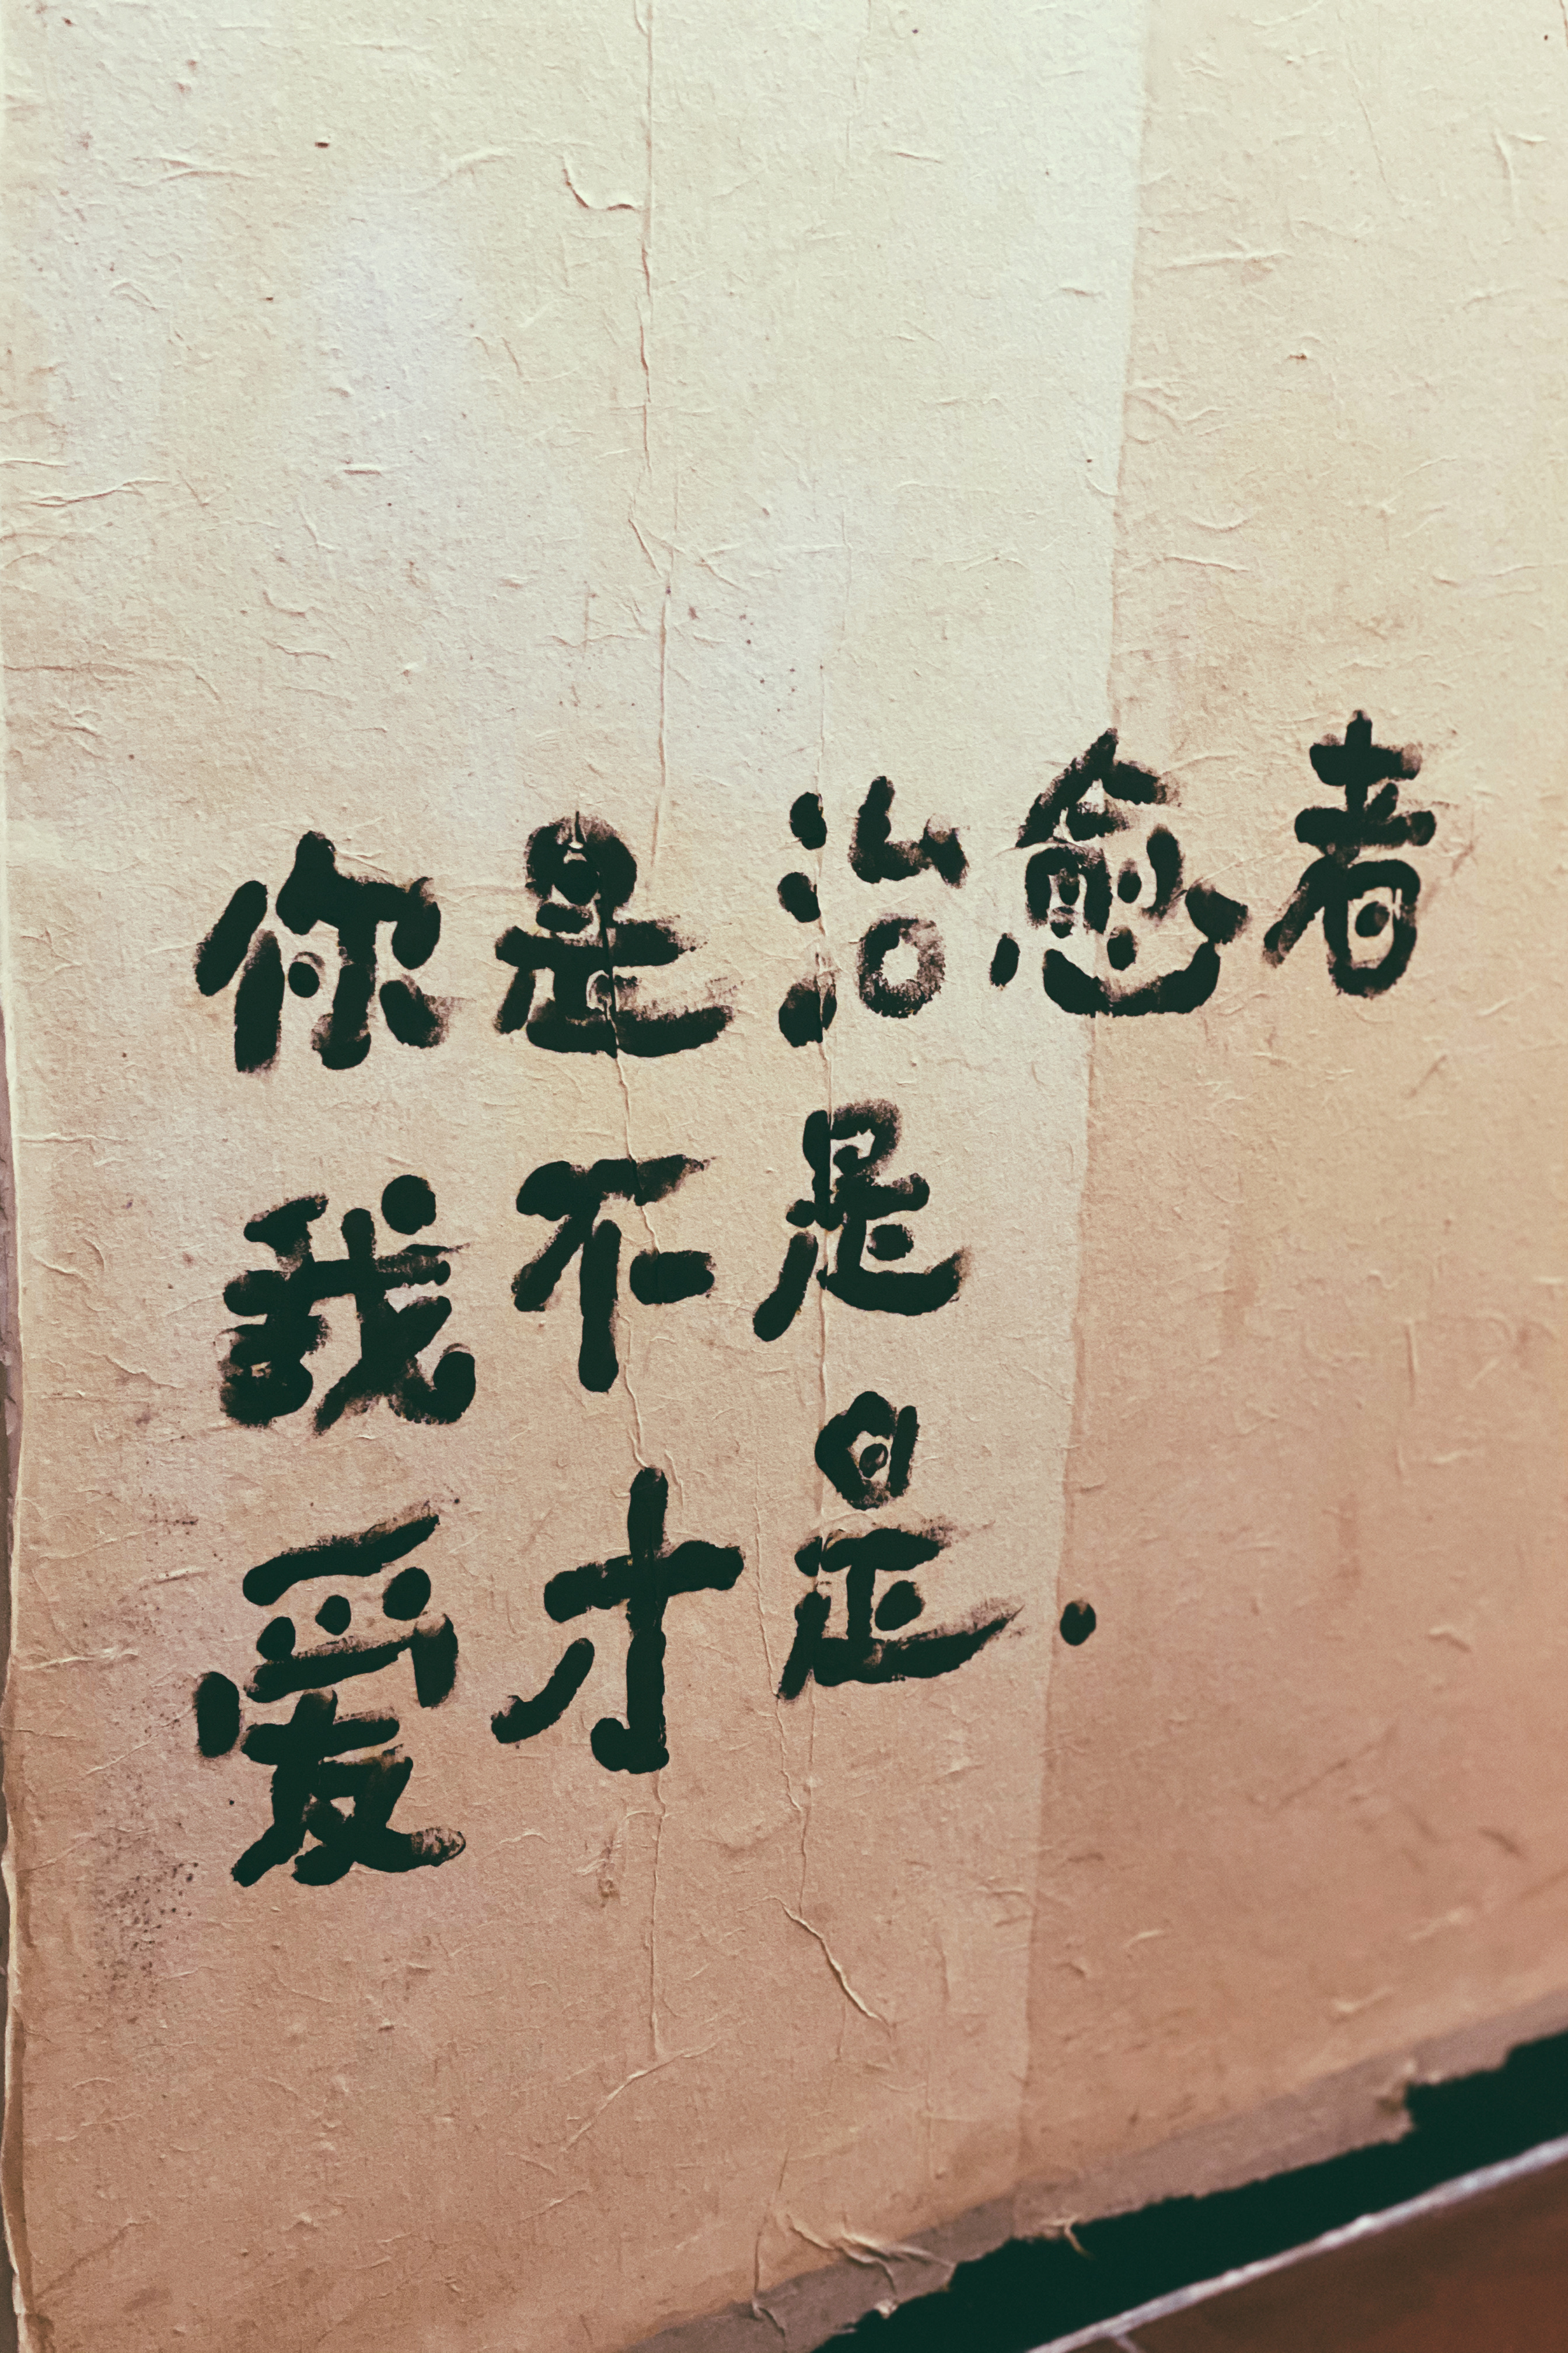 你是治愈者
我不是
爱才是.